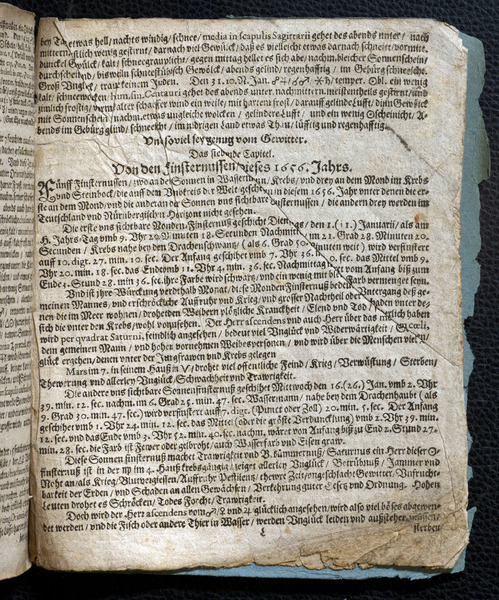 bey Tag etwas hell / nachts windig / schnee / media in scapulis Sagittarii gehet des abends unter / nach
mitternächtlich wenig gestirnt / darnach viel Gewülck / daß es vielleicht etwas darnach schneiet / vormitt.
dunckel Gwülck / kalt / schneegraupelicht / gegen mittag hellet es sich abe / nachm. bleicher Sonnenschein /
durchscheinend / bißweiln schutzstüblich Gewölck / abends gelind / regenhafftig / im Gebürg schneiecht.
Groß Unglück / traurt einem Juden. Den 31. 10. N. Jan. temper. Obl. ein wenig
kalt / schneewolcken / Centauri gehet des abends unter / nachmittern. meistentheils gestirnt / und
zimlich frostig / vorm. kalter scharffer wind ein weile / mit hartem frost / darauff gelinde Lufft / dünn Gewölck
mit Sonnenschein / nachm. etwas ungleiche wolcken / gelindere Lufft / und ein wenig ☉scheinicht / A-
bends im Gebürg glind / schneeicht / im nidrigen Land etwas Thun / lüfftig und regenhafftig.
Und so viel sey genug vom Gewitter.
Das siebende Capitel.
Von den Finsternussen dieses 1656. Jahrs.
Fünff Finsternussen / zwo an der Sonnen in Wasserman / Krebs / und drey an dem Mond im Krebs
und Steinbock / die auff dem Undkreis der Welt geschehen in diesem 1656. Jahr unter denen die er-
ste an dem Mond / und die ander an der Sonnen uns sichtbare Finsternussen / die andern drey werden im
Teutschland und Nürnbergischen Horizont nicht gesehen.
Die erste uns sichtbare Monden-Finsternuß geschicht Dienstag / den 1. (11.) Januarii / als am
H. Jahrs / Tag umb 9. Uhr 20. Minuten 18. Secunden Nachmittag / im 21. Grad 28. Minuten 20.
Secunden / Krebs nahe bey dem Drachenschwantz / (als 6. Grad 50. Minuten weit) wird verfinstert
auff 10. digt. 27. min. 10. sec. Der Anfang geschihet umb 7. Uhr 36. min. 0. sec. das Mittel umb 9.
Uhr 20. min. 18. sec. das Ende umb 11. Uhr 4. min. 36. sec. Nachmittag / und vom Anfang biß zum
Ende 3. Stund 28. min. 36. sec. ihre Farbe wird schwartz / und ein wenig mit bleicher Farb vermenget seyn.
Und ist ihre Würckung vorberhalb Monat / diese Monden-Finsternuß bedeut Untergang deß ge-
meinen Mannes / und erschröckliche Auffruhr und Krieg / und grosser Nachtheil oder Schaden unter de-
nen die im Meer wohnen / drohet den Weibern plötzliche Kranckheit / Elend und Tod / nemlich haben
sich die unter den Krebs / wohl vorzusehen. Der Herr ascendens und auch Herr über das mittel Coeli,
wird per quadrat Saturni, feindlich angesehen / bedeut viel Unglück und Widerwärtigkeit /
dem gemeinen Mann / und hoher vornehmen Weibespersonen / und wird über die Menschen viel Un-
glück ergehen / denen unter der Jungfrawen und Krebs gelegen
Mars im 7. in seinem Hauß in ♈ / drohet viel offentliche Feind / Krieg / Verwüstung / Sterben
Thewrung und allerley Unglück Schwachheit und Trawrigkeit.
Die andere uns sichtbare Sonnenfinsternuß geschihet Mittwoch den 16. (26.) Jan. umb 2. Uhr
39. min. 12. sec. nachm. im 6. Grad 25. min. 47. sec. Wasserman / nahe bey dem Drachenhaubt (als
9. Grad 30. min. 47. sec.) wird verfinstert auff 7. digt. (Punct oder Zoll) 20. min. 5. sec. Der Anfang
geschihet umb 1. Uhr 24. min. 12. sec. das Mittel (oder die gröste Verdunckelung) umb 2. Uhr 39. min.
12. sec. und das Ende umb 3. Uhr 52. min. 40. sec. nachm. wäret von Anfang biß zu End 2. Stund 27.
min. 28. sec. die Farb ist Fewer oder gelbroht / auch Wasserfarb und Eisen graw.
Diese Sonnen finsternuß machet Trawrigkeit und Bekümmernuß / Saturnus ein Herr dieser ☉-
finsternuß ist in der im 4. Hauß krebsgängig / zeiget allerley Unglück / Betrübnuß / Jammer und
Noht an / als Krieg / Blutvergiessen / Auffruhr / Pestilentz / thewer Zeit / ungeschlacht Gewitter / Unfrucht-
barkeit der Erden / und Schaden an allen Gewächsen / Verkehrung guter Gesetz und Ordnung. Hohen
Leuten drohet es Schröcken / Todes Forcht / Trawrigkeit.
Doch wird der Herr ascendens vom ♂ / ♀ und ♃ glücklich angesehen / wird also viel böses abgewen-
det werden / und die Fisch oder andere Thier in Wasser / werden Unglück leiden und außstehen müssen /
sterben